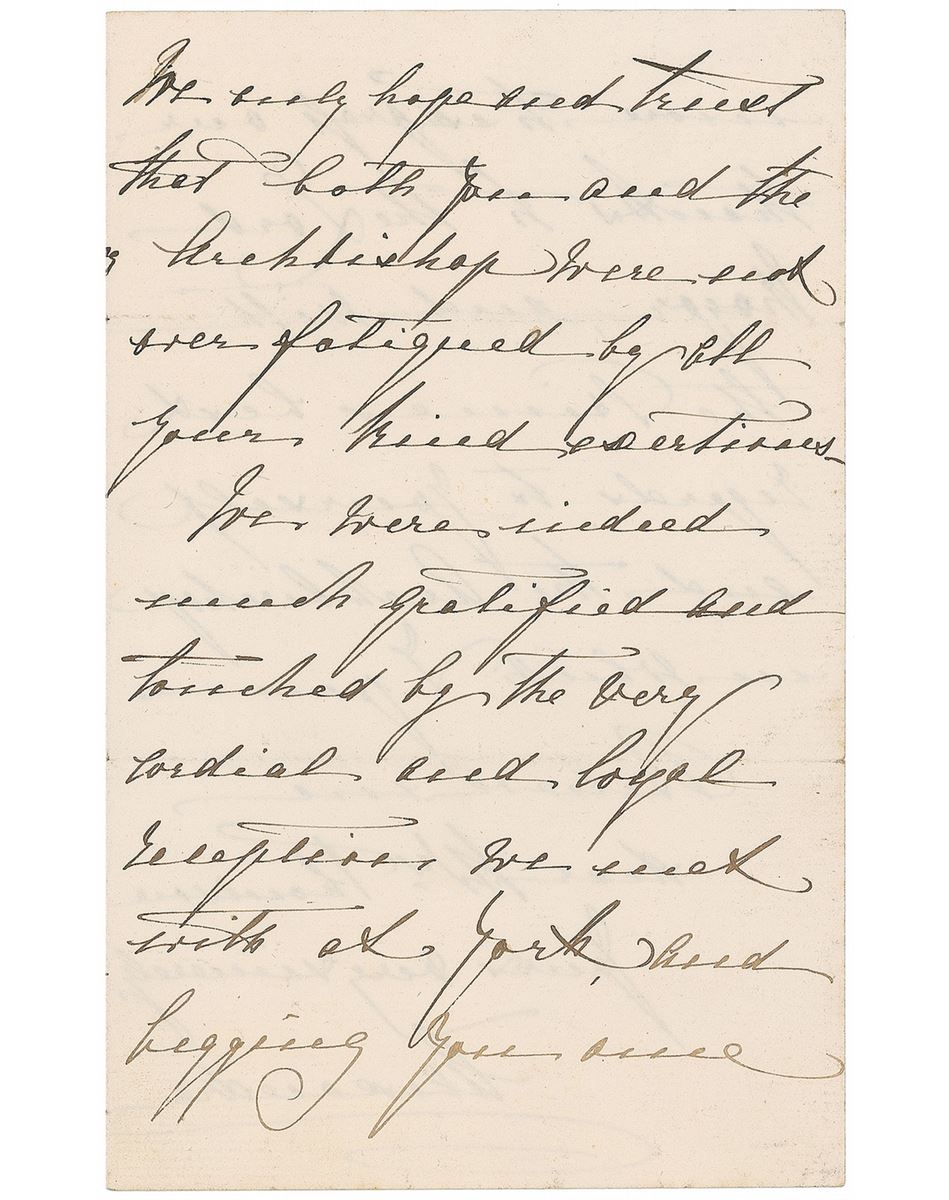 We only hope and trust
that both you and the
Archbishop were not
over fatigued by all
your kind exertions –
We were indeed
much gratified and
touched by the very
cordial and loyal
reception we met
with at York, and
begging you once